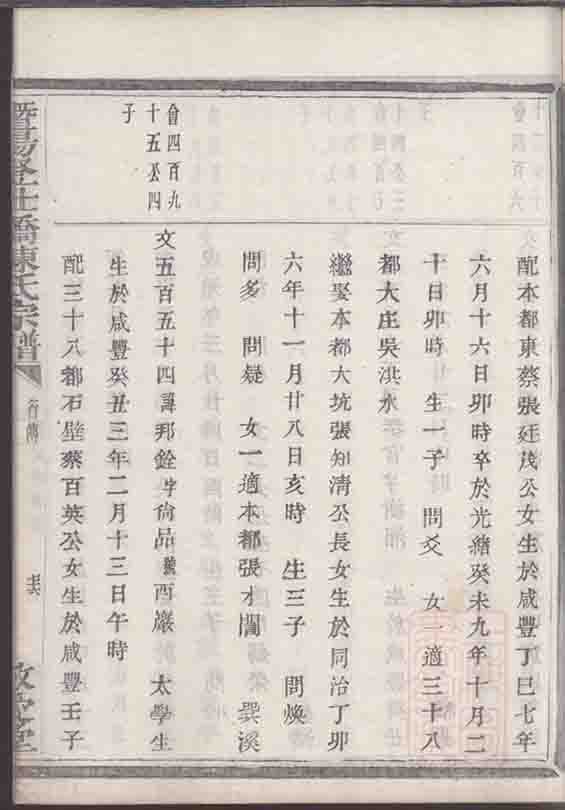 配本都東蔡張廷茂公女生於咸豐丁巳七年
六月十六日卯時卒於光緒癸未九年十月二
十日卯時 生一子 問爻 女一適三十八
都大庄吳洪永
繼娶本都大坑張知清公長女生於同治丁卯
六年十一月廿八日亥時 生三子 問煥
問多 問疑 女一適本都張才 巽溪
會四百九
十五公四
子
文五百五十四諱邦銓字尙品號西巖 太學生
生於咸豐癸丑三年二月十三日午時
配三十八都石壁蔡百英公女生於咸豐壬子
暨陽 橋陳氏宗譜
行傳